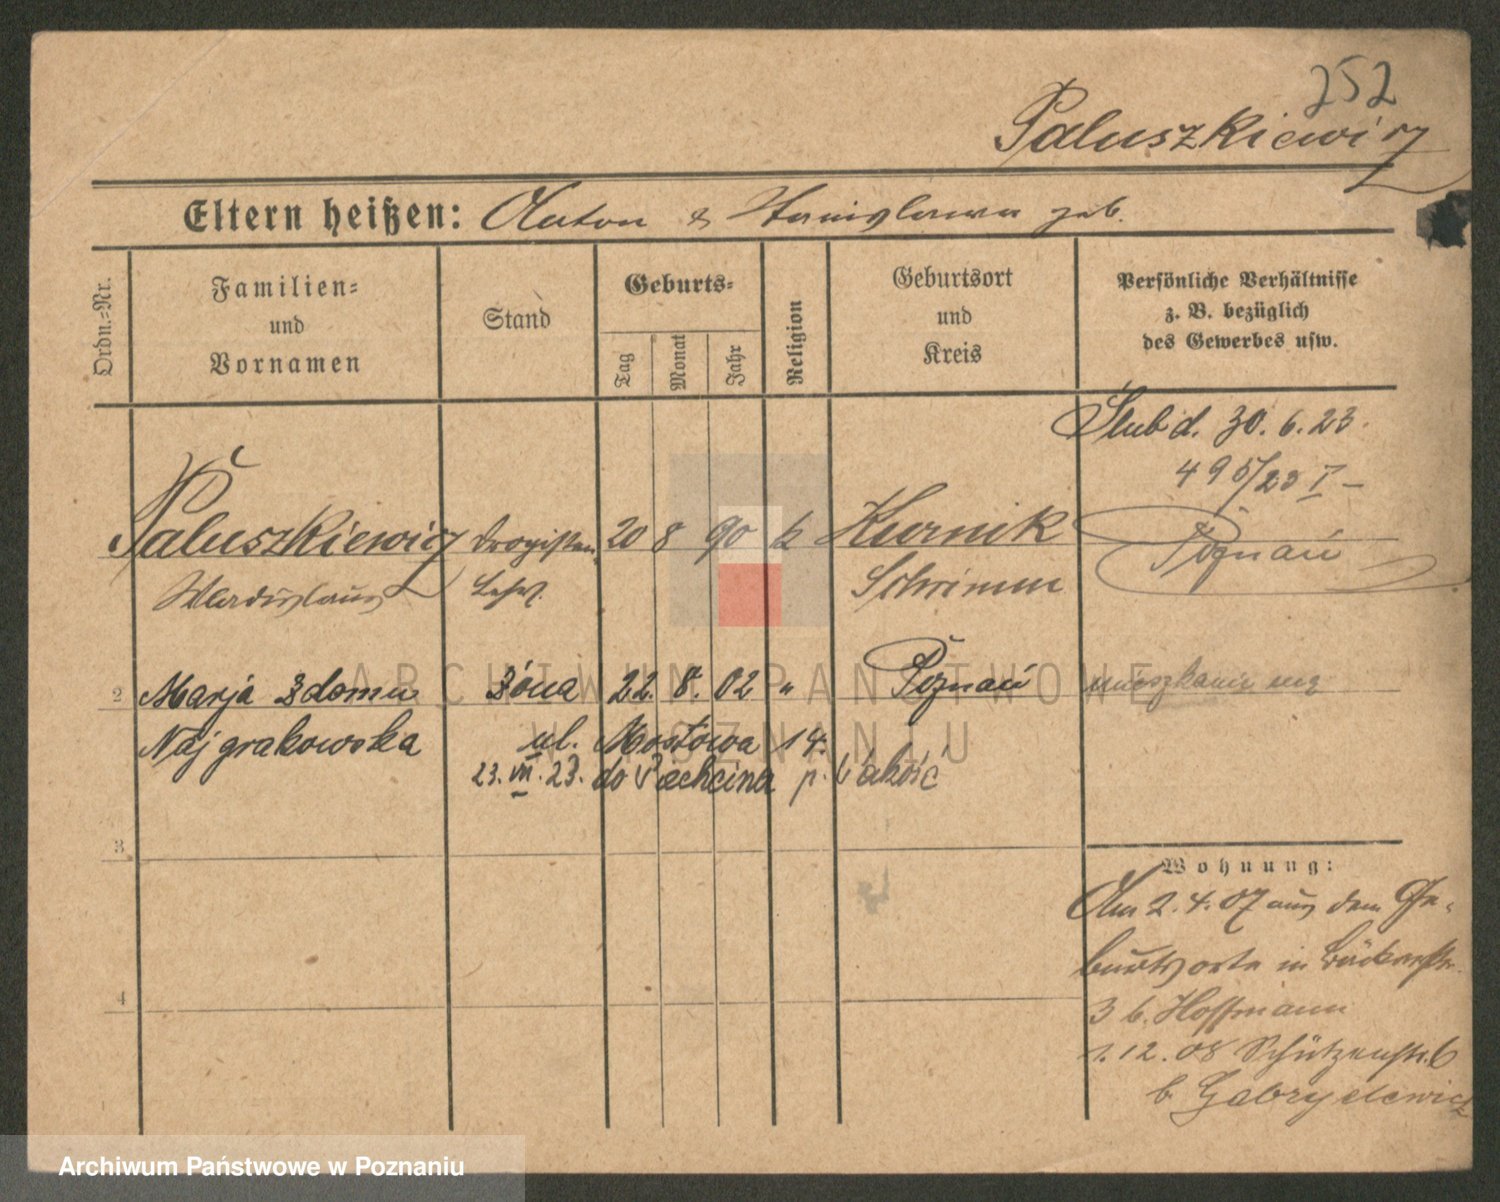 252
Paluszkiewicz
Eltern heißen: Anton & Stanislawa geb.
Ordn.=Nr.
Familien=
und
Vornamen
Stand
Geburts=
Tag
Monat
Jahr
Religion
Geburtsort
und
Kreis
Persönliche Verhältnisse
z. B. bezüglich
des Gewerbes usw.
Ślub d. 30. 6. 23.
495/23 I –
Paluszkiewicz Drogisten 20 8 90 k Kurnik Poznań
Wladislaus Lehrl. Schrimm
2 Marja z domu żona 22. 8. 02 " Poznań mieszkanie
Najgrakowska ul. Mostowa 14.
23. VII. 23. do Pechcina p.
3
Wohnung:
Am 2. 4. 07 aus dem Ge-
burtsorte in Bäckerstr.
3 b. Hoffmann
4
1. 12. 08 Schützenstr. 6
b. Gabryelewicz
ARCHIWUM PAŃSTWOWE
W POZNANIU
Archiwum Państwowe w Poznaniu